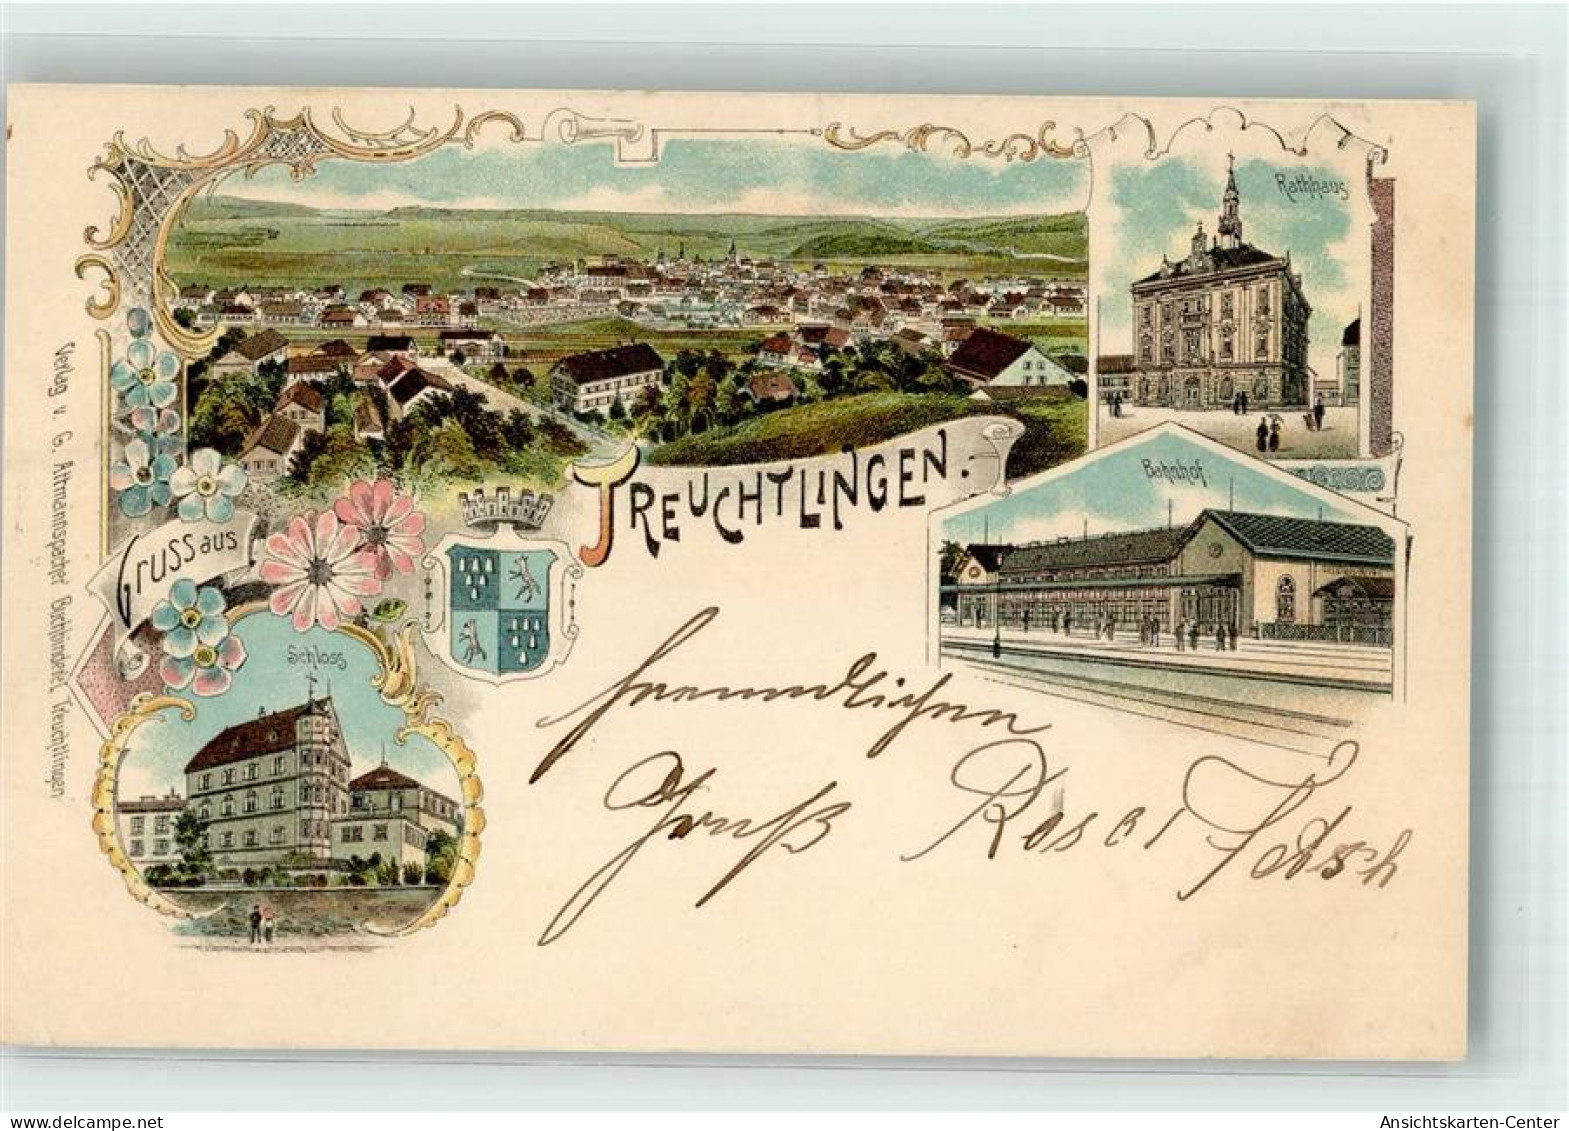 Rathhaus
TREUCHTLINGEN.
Bahnhof.
Gruss aus
Schloss
Verlag v. G. Altmannspacher Buchbinderei, Treuchtlingen
freundlichen
Gruß Rosa
Ansichtskarten-Center